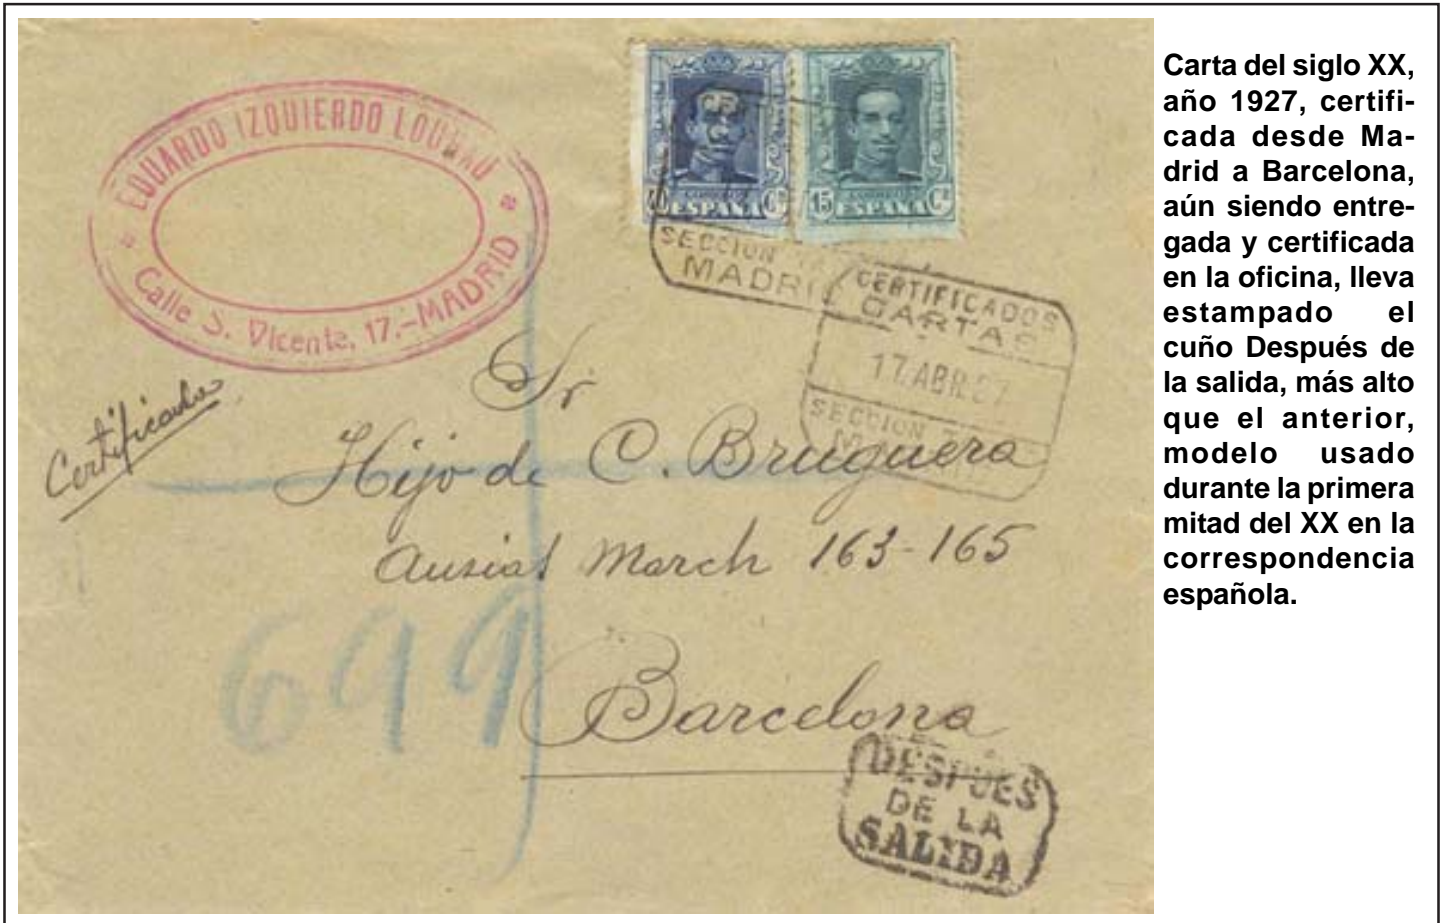 EDUARDO IZQUIERDO
Calle S. Vicente, 17.-MADRID
ESPAÑA
15 ESPAÑA
SECCION
MADRID
CERTIFICADOS
CARTAS
17 ABR.27
SECCION
Certificado
Sr
Hijo de C. Bruguera
Ausias March 163-165
699
Barcelona
DESPUES
DE LA
SALIDA
Carta del siglo XX,
año 1927, certifi-
cada desde Ma-
drid a Barcelona,
aún siendo entre-
gada y certificada
en la oficina, lleva
estampado el
cuño Después de
la salida, más alto
que el anterior,
modelo usado
durante la primera
mitad del XX en la
correspondencia
española.